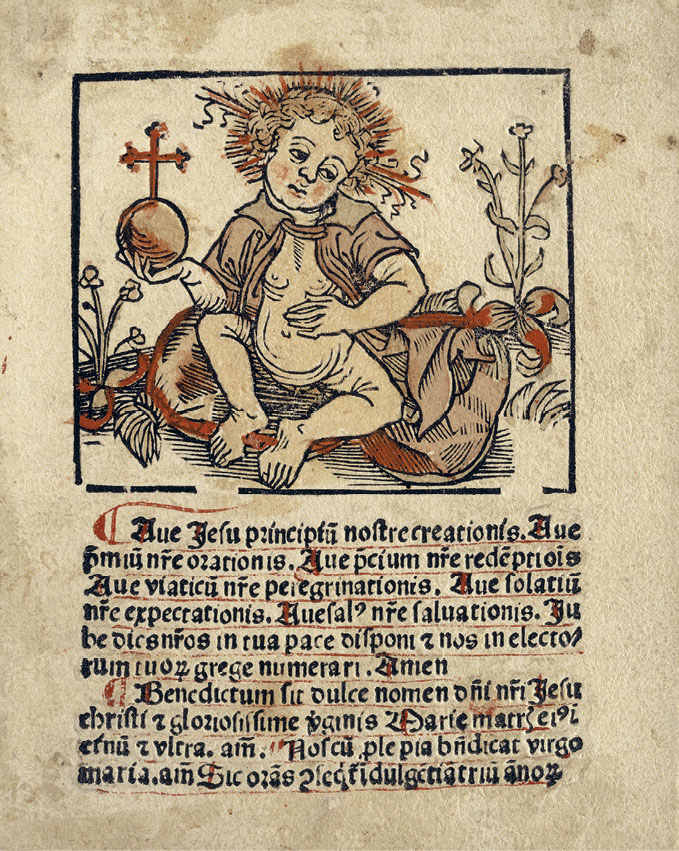 ¶ Aue Jesu principiū nostre creationis. Aue
p̄miū nr̄e orationis. Aue p̄cium nr̄e redēptiois
Aue viaticū nr̄e peregrinationis. Aue solatiū
nr̄e expectationis. Aue salꝰ nr̄e saluationis. Ju
be dies nr̄os in tua pace disponi ⁊ nos in electo⸗
rum tuoꝝ grege numerari. Amen
¶ Benedictum sit dulce nomen dn̄i nr̄i Jesu
christi ⁊ gloriosissime v̄ginis Marie matris eiꝰ ī
et̄nū ⁊ vltra. am̄. Nos cū ꝓle pia bn̄dicat virgo
maria. am̄ Sic orās ꝯseq̄t̄ īdulgētiā triū ānoꝝ